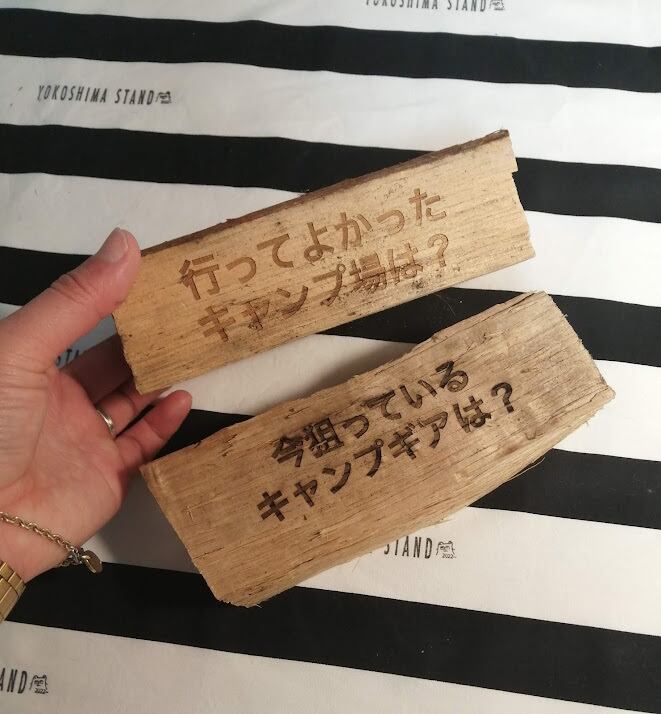 YOKOSHIMA STAND
YOKOSHIMA STAND
行ってよかった
キャンプ場は？
今狙っている
キャンプギアは？
STAND
2022
AND
2022